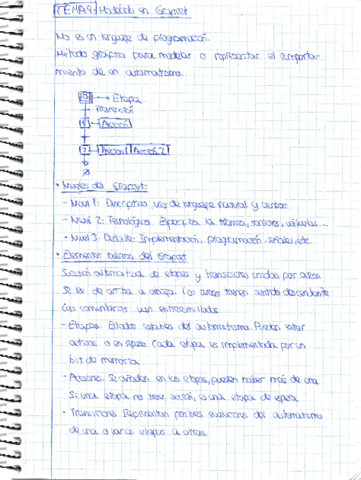 TEMA 4 Modelado en Grafcet
No es un lenguaje de programación.
Método gráfico para modelar o representar el comporta-
miento de un automatismo.
0 → Etapa
Transición
1 Acción
2 Acción 1 Acción 2
• Niveles del Grafcet:
- Nivel 1: Descriptiva, uso de lenguaje natural y verbos.
- Nivel 2: Tecnológica. Especifica la técnica, sensores,
- Nivel 3: Detalle. Implementación, programación, señales, etc.
• Elementos básicos del Grafcet
Sucesión alternativa de etapas y transiciones unidas por arcos
Se lee de arriba a abajo. Los arcos tienen sentido descendente
Los comentarios van entrecomillados
- Etapas. Estados estables del automatismo. Pueden estar
activas o en reposo. Cada etapa es implementada por un
bit de memoria.
- Acciones. Se añaden en las etapas, pueden haber más de una
Si una etapa no tiene acción, es una etapa de espera.
- Transiciones. Representan posibles evoluciones del automatismo
de una o varias etapas a otras.